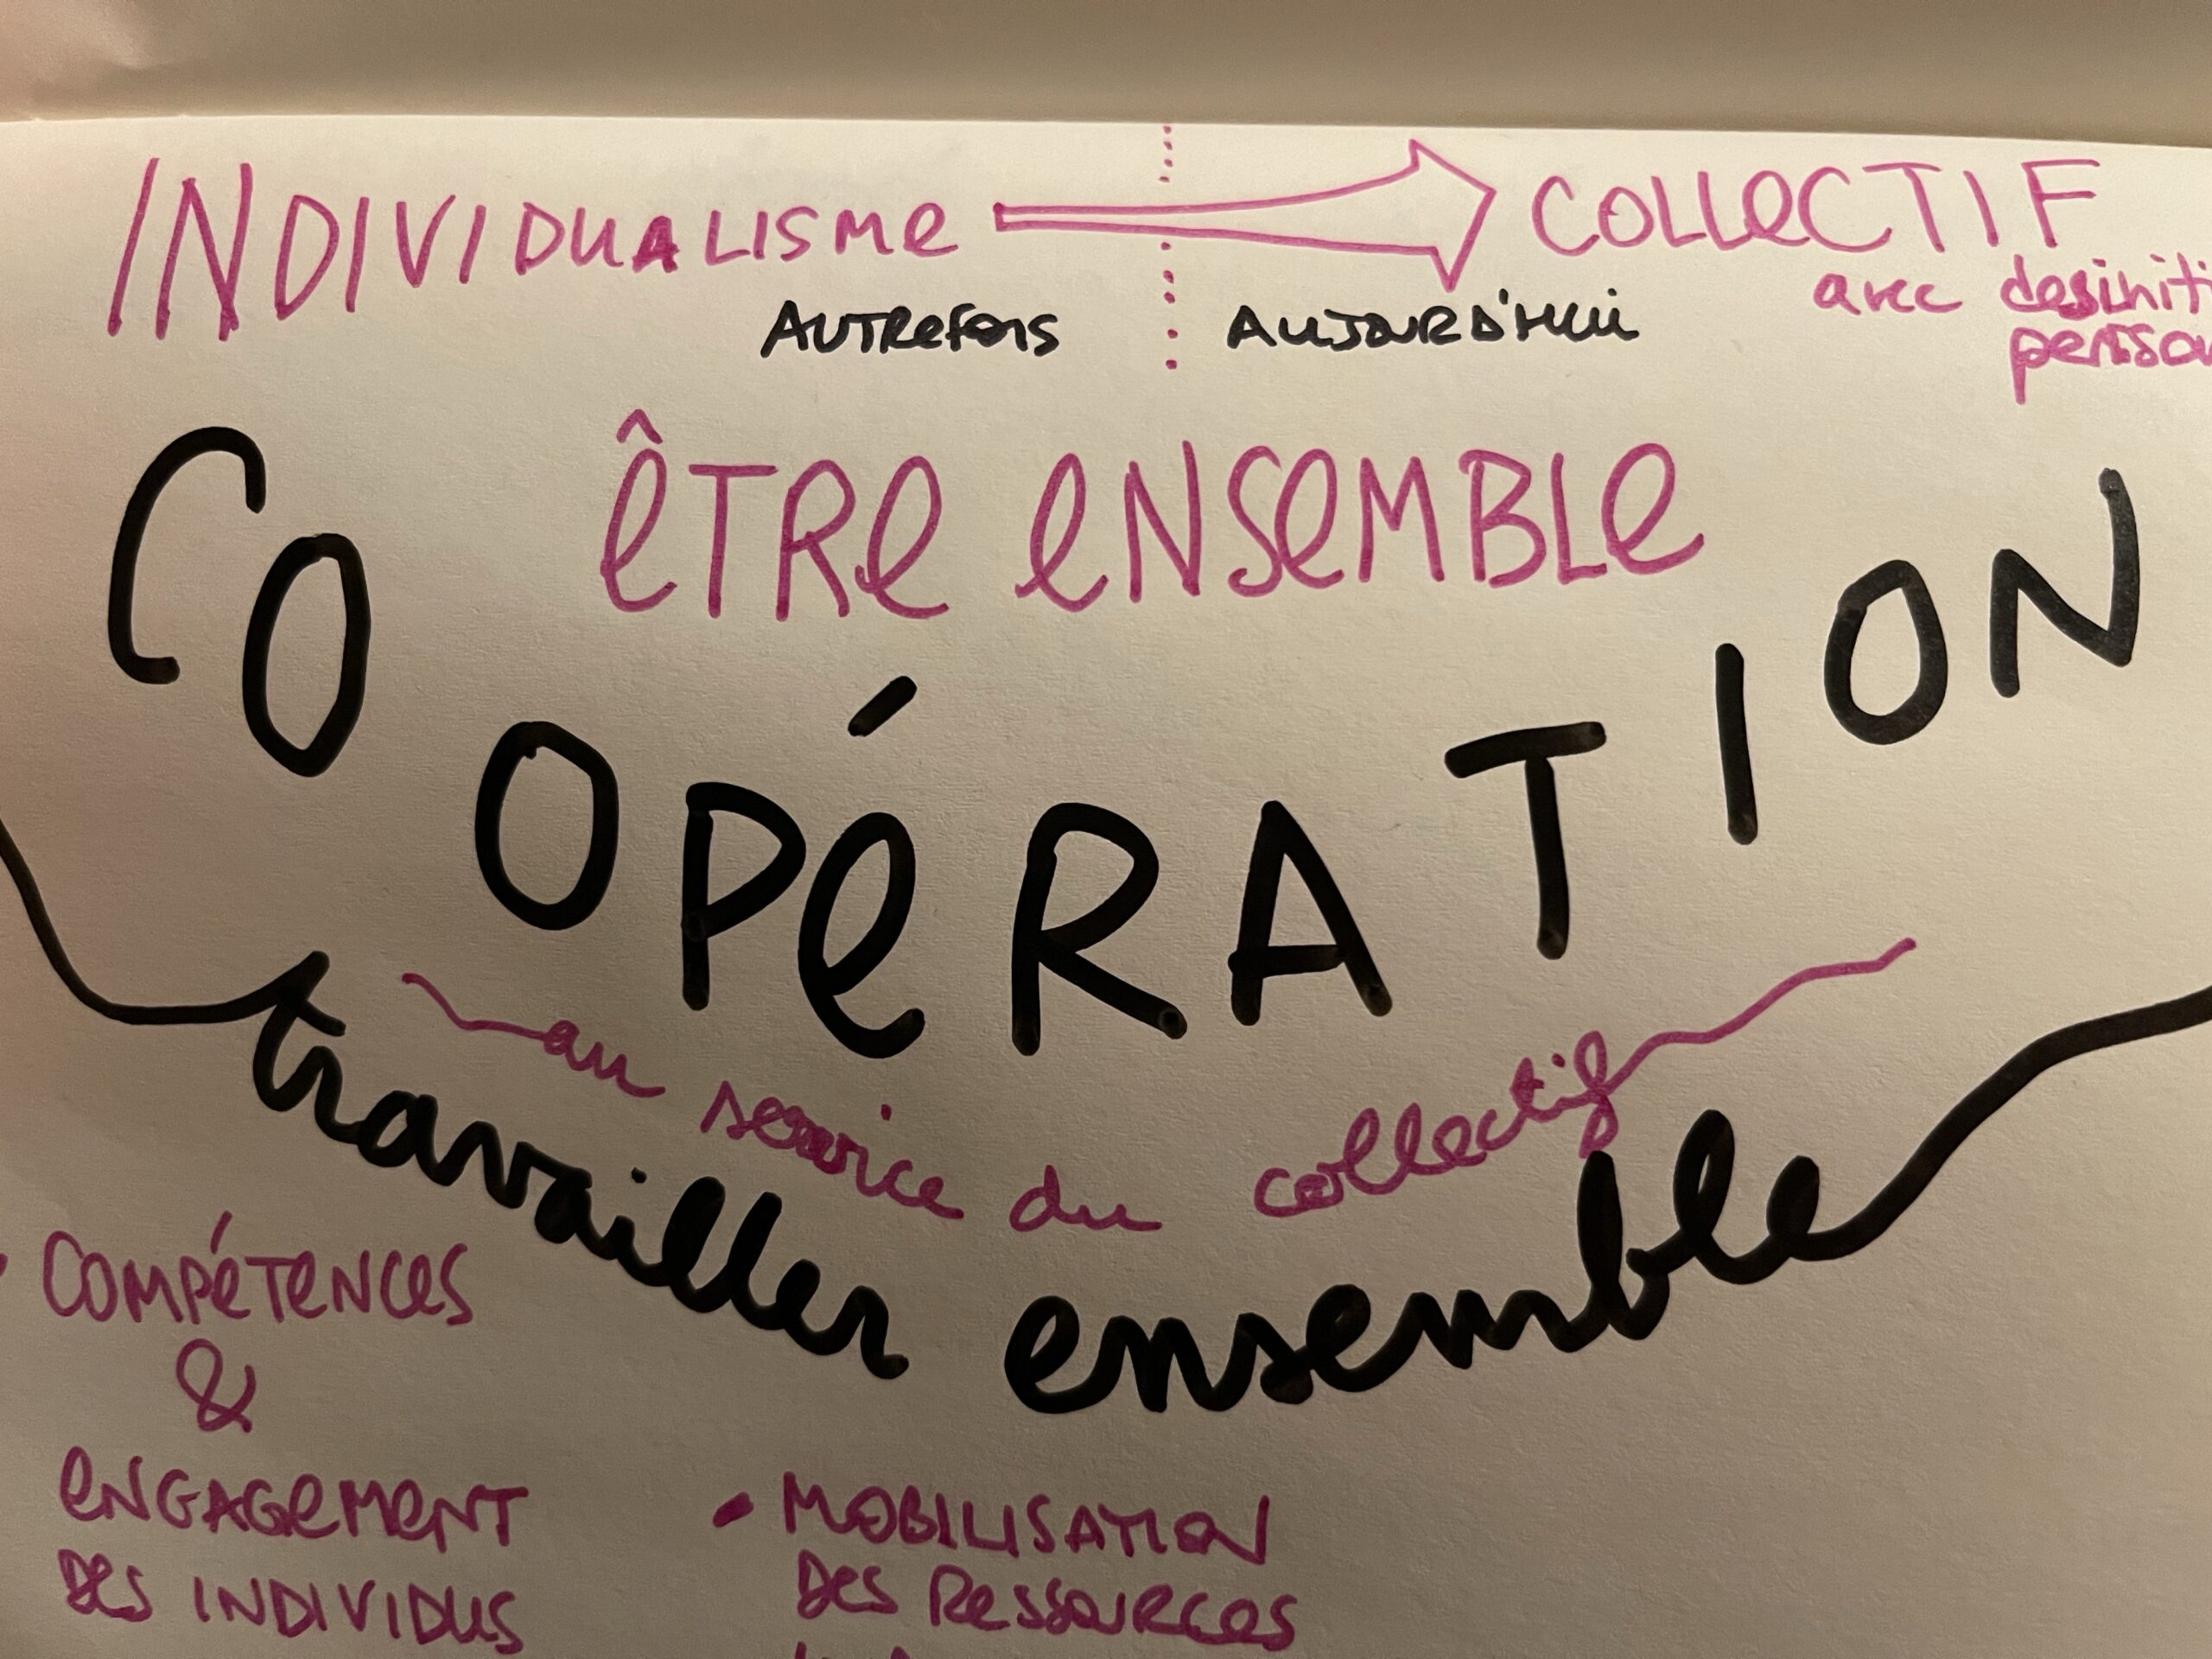 INDIVIDUALISME COLLECTIF
avec des
AUTREFOIS AUJOURD'HUI
ÊTRE ENSEMBLE
COOPÉRATION
au service du collectif
travailler ensemble
• COMPÉTENCES
&
ENGAGEMENT
DES INDIVIDUS
• MOBILISATION
DES RESSOURCES